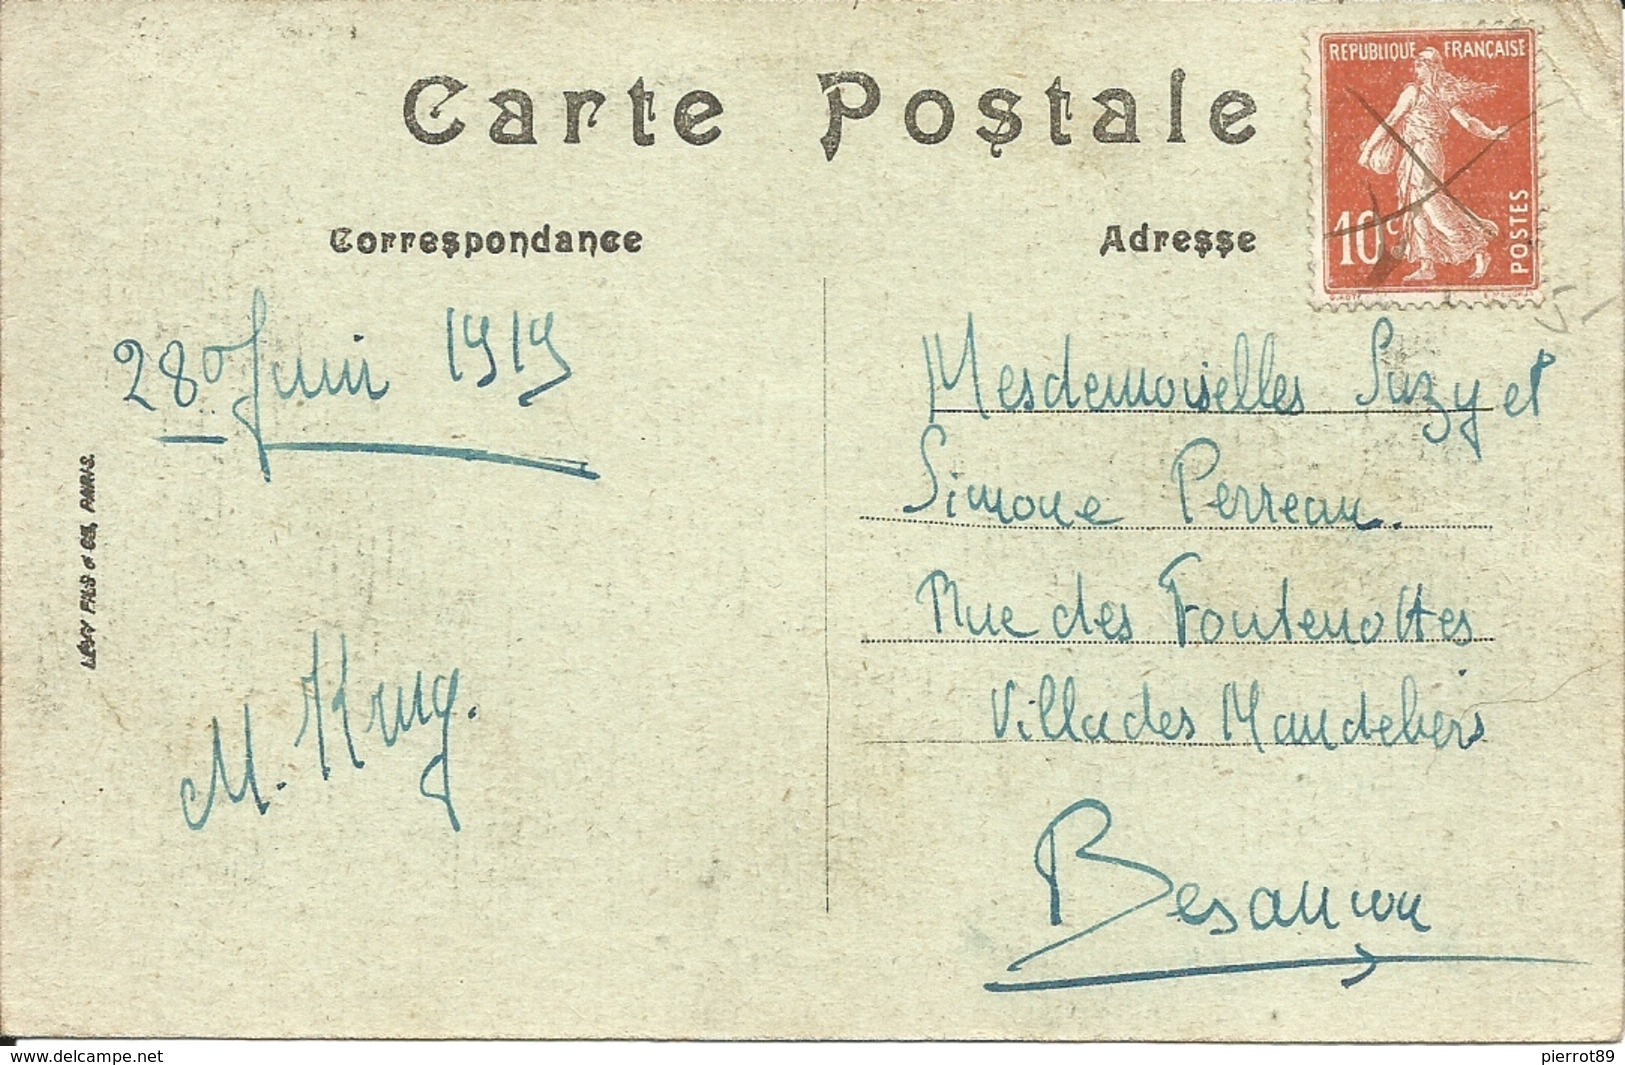 Carte Postale
REPUBLIQUE FRANÇAISE
10c
POSTES
Correspondance
Adresse
28 Juin 1919
M. Krug.
LÉVY FILS & Cie, PARIS.
Mesdemoiselles Suzy et
Simone Perreau.
Rue des Fontenottes
Villa des Mandeliers
Besançon
www.delcampe.net
pierrot89